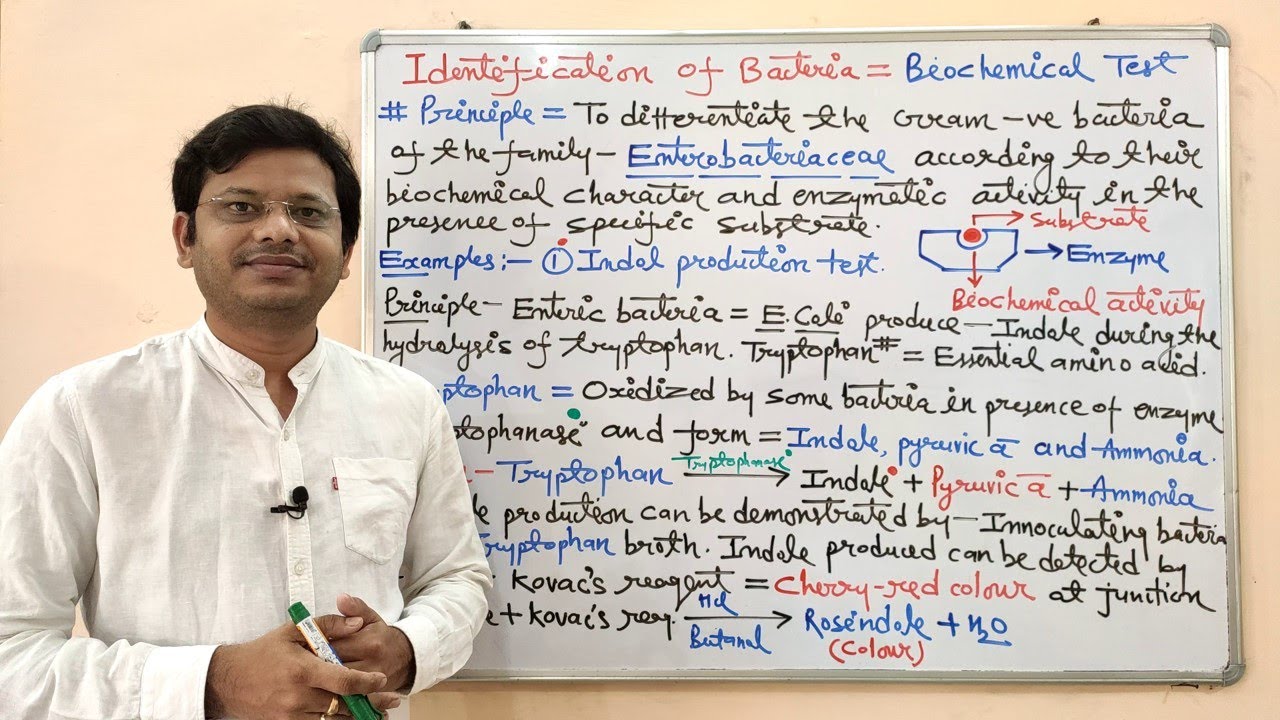 Identification of Bacteria = Biochemical Test
# Principle = To differentiate the Gram -ve bacteria
of the family - Enterobacteriaceae according to their
biochemical character and enzymatic activity in the
presence of specific substrate.
Substrate
Enzyme
Biochemical activity
Examples:- ① Indol production test.
Principle - Enteric bacteria = E. Coli produce - Indole during the
hydrolysis of tryptophan. Tryptophan# = Essential amino acid.
ptophan = Oxidized by some bactria in presence of enzyme
tophanase and form = Indole, pyruvic a and Ammonia.
- Tryptophan Tryptophanase → Indole + Pyruvic a + Ammonia
le production can be demonstrated by - Innoculating bacteria
Tryptophan broth. Indole produced can be detected by
Kovac's reagent = Cherry-red colour at junction
e + Kovac's rea. Hcl Butanal → Rosindole + H2O
(Colour)